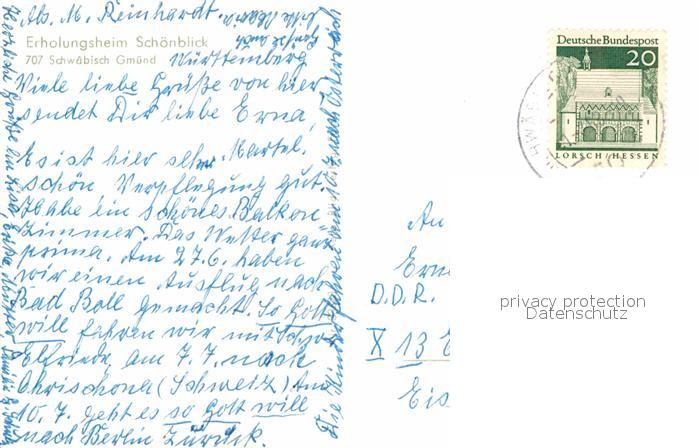 Abs. M. Reinhardt.
Erholungsheim Schönblick
707 Schwäbisch Gmünd
Württemberg
Viele liebe Grüße von hier
sendet Dir liebe Erna
Martel.
Es ist hier sehr
schön Verpflegung gut.
Ich habe ein schönes Balkon
Zimmer. Das Wetter ganz
prima. Am 27.6. haben
wir einen Ausflug nach
Bad Boll gemacht. So Gott
will fahren wir mit Schw.
Elfriede am 7.7. nach
Chrischona (Schweiz) Am
10.7. geht es so Gott will
nach Berlin zurück.
Die Kinder fahren
Herzliche Grüße
Deutsche Bundespost
20
LORSCH/HESSEN
An
Erna
D.D.R.
X 13 E
Eis
privacy protection
Datenschutz